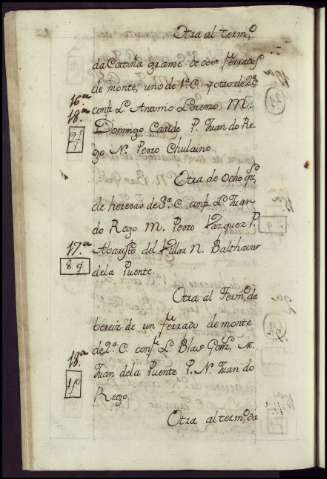 Otra al term.º
da Cortiña grame de dos ferrados
de monte, uno de 1.ª C. y otro de 2.ª
16.ª
18.ª
conf. L. Antonio Lorenzo, M.
Domingo Caride P. Juan do Re-
go N. Pedro Chulano.
Otra de Ocho qs.
de heredad de 3.ª C. conf. L. Juan
do Rego M. Pedro Vazquez P.
17.ª
Augusto del Pilar N. Balthasar
8 q
dela Puente
Otra al Term.º de
bereiz de un ferrado de monte
18.ª
de 2.ª C. conf. L. Blas Gonz. M.
Juan dela Puente P. N. Juan do
1 f
Rego.
Otra al term.º da